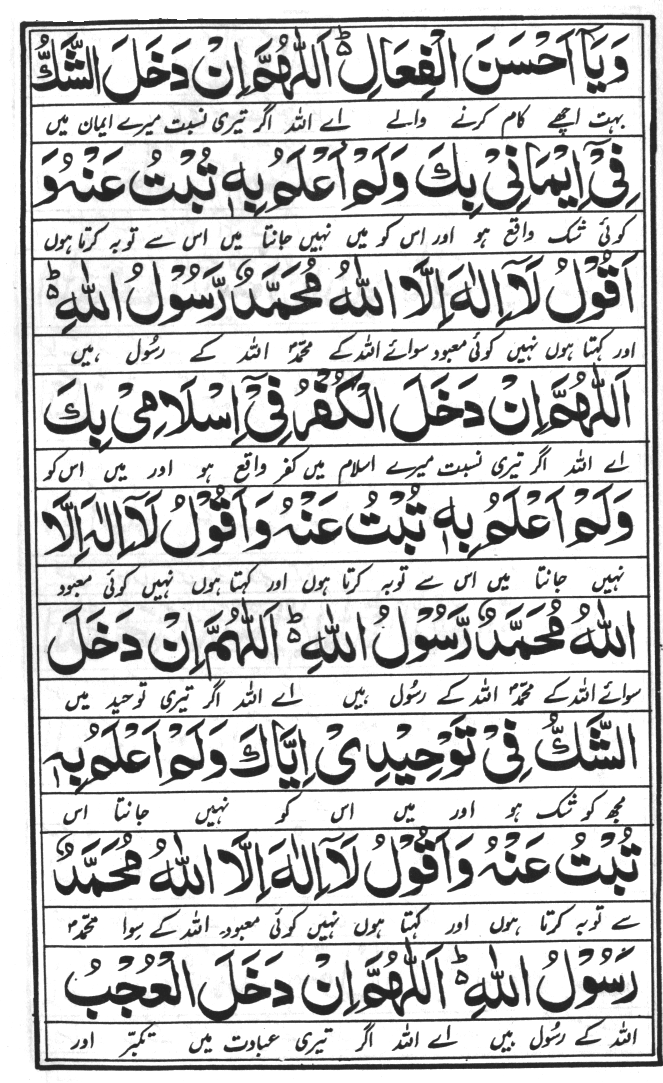 وَيَآ اَحْسَنَ الْفِعَالِ ؕ اَللّٰهُمَّ اِنْ دَخَلَ الشَّكُّ
بہت اچھے کام کرنے والے اے اللہ اگر تیری نسبت میرے ایمان میں
فِيْٓ اِيْمَانِيْ بِكَ وَلَمْ اَعْلَمُ بِهٖ تُبْتُ عَنْهُ وَ
کوئی شک واقع ہو اور اس کو میں نہیں جانتا میں اس سے توبہ کرتا ہوں
اَقُوْلُ لَآ اِلٰهَ اِلَّا اللهُ مُحَمَّدٌ رَّسُوْلُ اللهِ ؕ
اور کہتا ہوں نہیں کوئی معبود سوائے اللہ کے محمدؐ اللہ کے رسُول ہیں
اَللّٰهُمَّ اِنْ دَخَلَ الْكُفْرُ فِيْٓ اِسْلَامِيْ بِكَ
اے اللہ اگر تیری نسبت میرے اسلام میں کفر واقع ہو اور میں اس کو
وَلَمْ اَعْلَمُ بِهٖ تُبْتُ عَنْهُ وَاَقُوْلُ لَآ اِلٰهَ اِلَّا
نہیں جانتا میں اس سے توبہ کرتا ہوں اور کہتا ہوں نہیں کوئی معبود
اللهُ مُحَمَّدٌ رَّسُوْلُ اللهِ ؕ اَللّٰهُمَّ اِنْ دَخَلَ
سوائے اللہ کے محمدؐ اللہ کے رسُول ہیں اے اللہ اگر تیری توحید میں
الشَّكُّ فِيْ تَوْحِيْدِيْ اِيَّاكَ وَلَمْ اَعْلَمُ بِهٖ
مجھ کو شک ہو اور میں اس کو نہیں جانتا اس
تُبْتُ عَنْهُ وَاَقُوْلُ لَآ اِلٰهَ اِلَّا اللهُ مُحَمَّدٌ
سے توبہ کرتا ہوں اور کہتا ہوں نہیں کوئی معبود اللہ کے سوا محمدؐ
رَّسُوْلُ اللهِ ؕ اَللّٰهُمَّ اِنْ دَخَلَ الْعُجْبُ
اللہ کے رسُول ہیں اے اللہ اگر تیری عبادت میں تکبّر اور